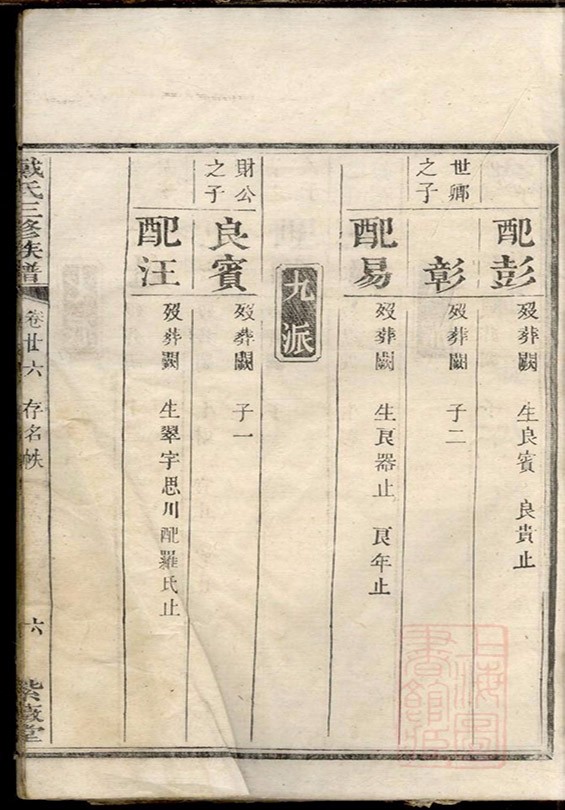 配彭 歿葬闕 生良賓 良貴止
世卿之子 彰 歿葬闕 子二
配易 歿葬闕 生良器止 良年止
九派
財公之子 良賓 歿葬闕 子一
配汪 歿葬闕 生翠字思川配羅氏止
戴氏三修族譜 卷廿六 存名帙 六 紫薇堂
上海圖書館藏